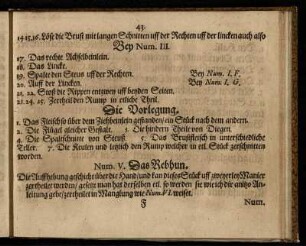 43.
14. 15. 16. Löse die Brust mit langen Schnitten uff der Rechten uff der lincken auch also
Bey Num. III.
17. Das rechte Achselbeinlein.
18. Das Lincke.
19. Spalter den Steus uff der Rechten. Bey Num. I, F.
20. Auff der Lincken. Bey Num. I, G.
21. 22. Stoß die Rippen entzwey uff beyden Seiten.
23. 24. 25. Zertheil den Rump in etliche Theil.
Die Vorlegung.
1. Das Fleisch so über dem Ziehbeinlein gestanden / ein Stück nach dem andern.
2. Die Flügel gleicher Gestalt. 3. Die hindern Theile von Diegen.
4. Die Spalschnitte von Steuß 5. Das Brustfleisch in unterschiedliche
Teller. 7. Die Keulen und letzlich den Rump welcher in etl. Stück geschnitten
worden.
Num. V. Das Rebhun.
Die Auffhebung geschicht über die Hand / und kan dieses Stück uff zweyerley Manier
zertheilet werden / gesetzt man hat derselben etl. so werden sie wie ich die gantze An-
leitung gebe / zertheilet in Manglung wie Num VI. weiset.
F Num.